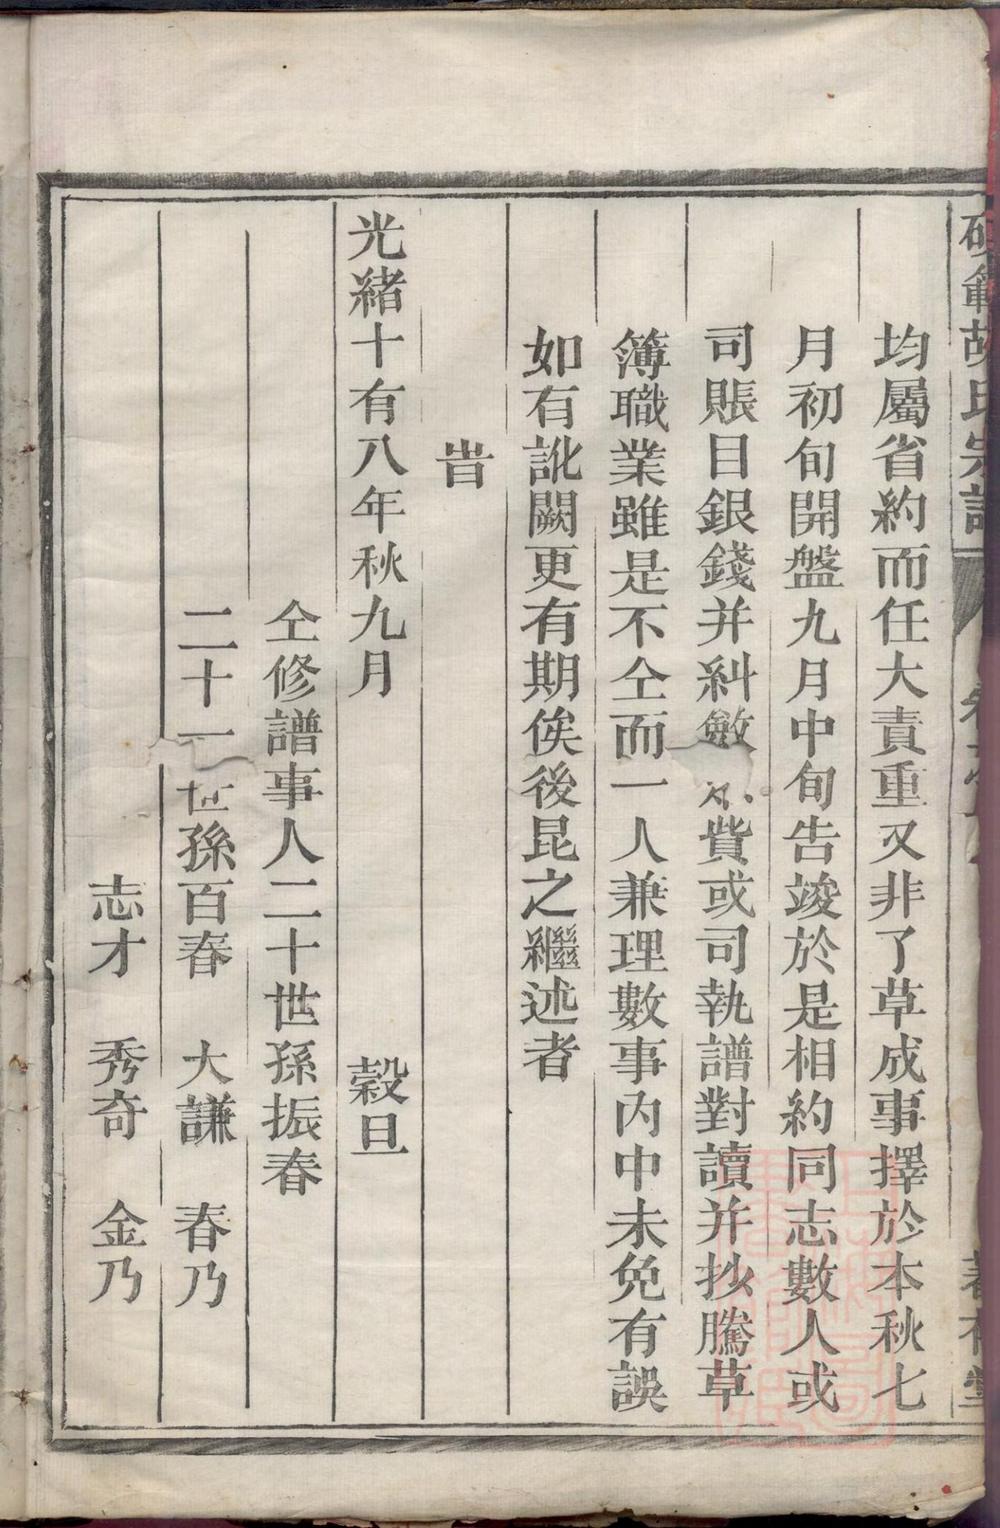 胡氏宗譜
均屬省約而任大責重又非了草成事擇於本秋七
月初旬開盤九月中旬告竣於是相約同志數人或
司賬目銀錢并糾斂費或司執譜對讀并抄騰草
簿職業雖是不仝而一人兼理數事內中未免有誤
如有訛闕更有期俟後昆之繼述者
旹
光緒十有八年秋九月 穀旦
仝修譜事人二十世孫振春
二十一世孫百春 大謙 春乃
志才 秀奇 金乃